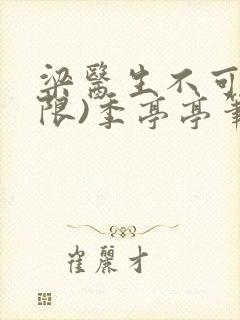 梁醫生不可
限)季亭亭筆
崔麗才